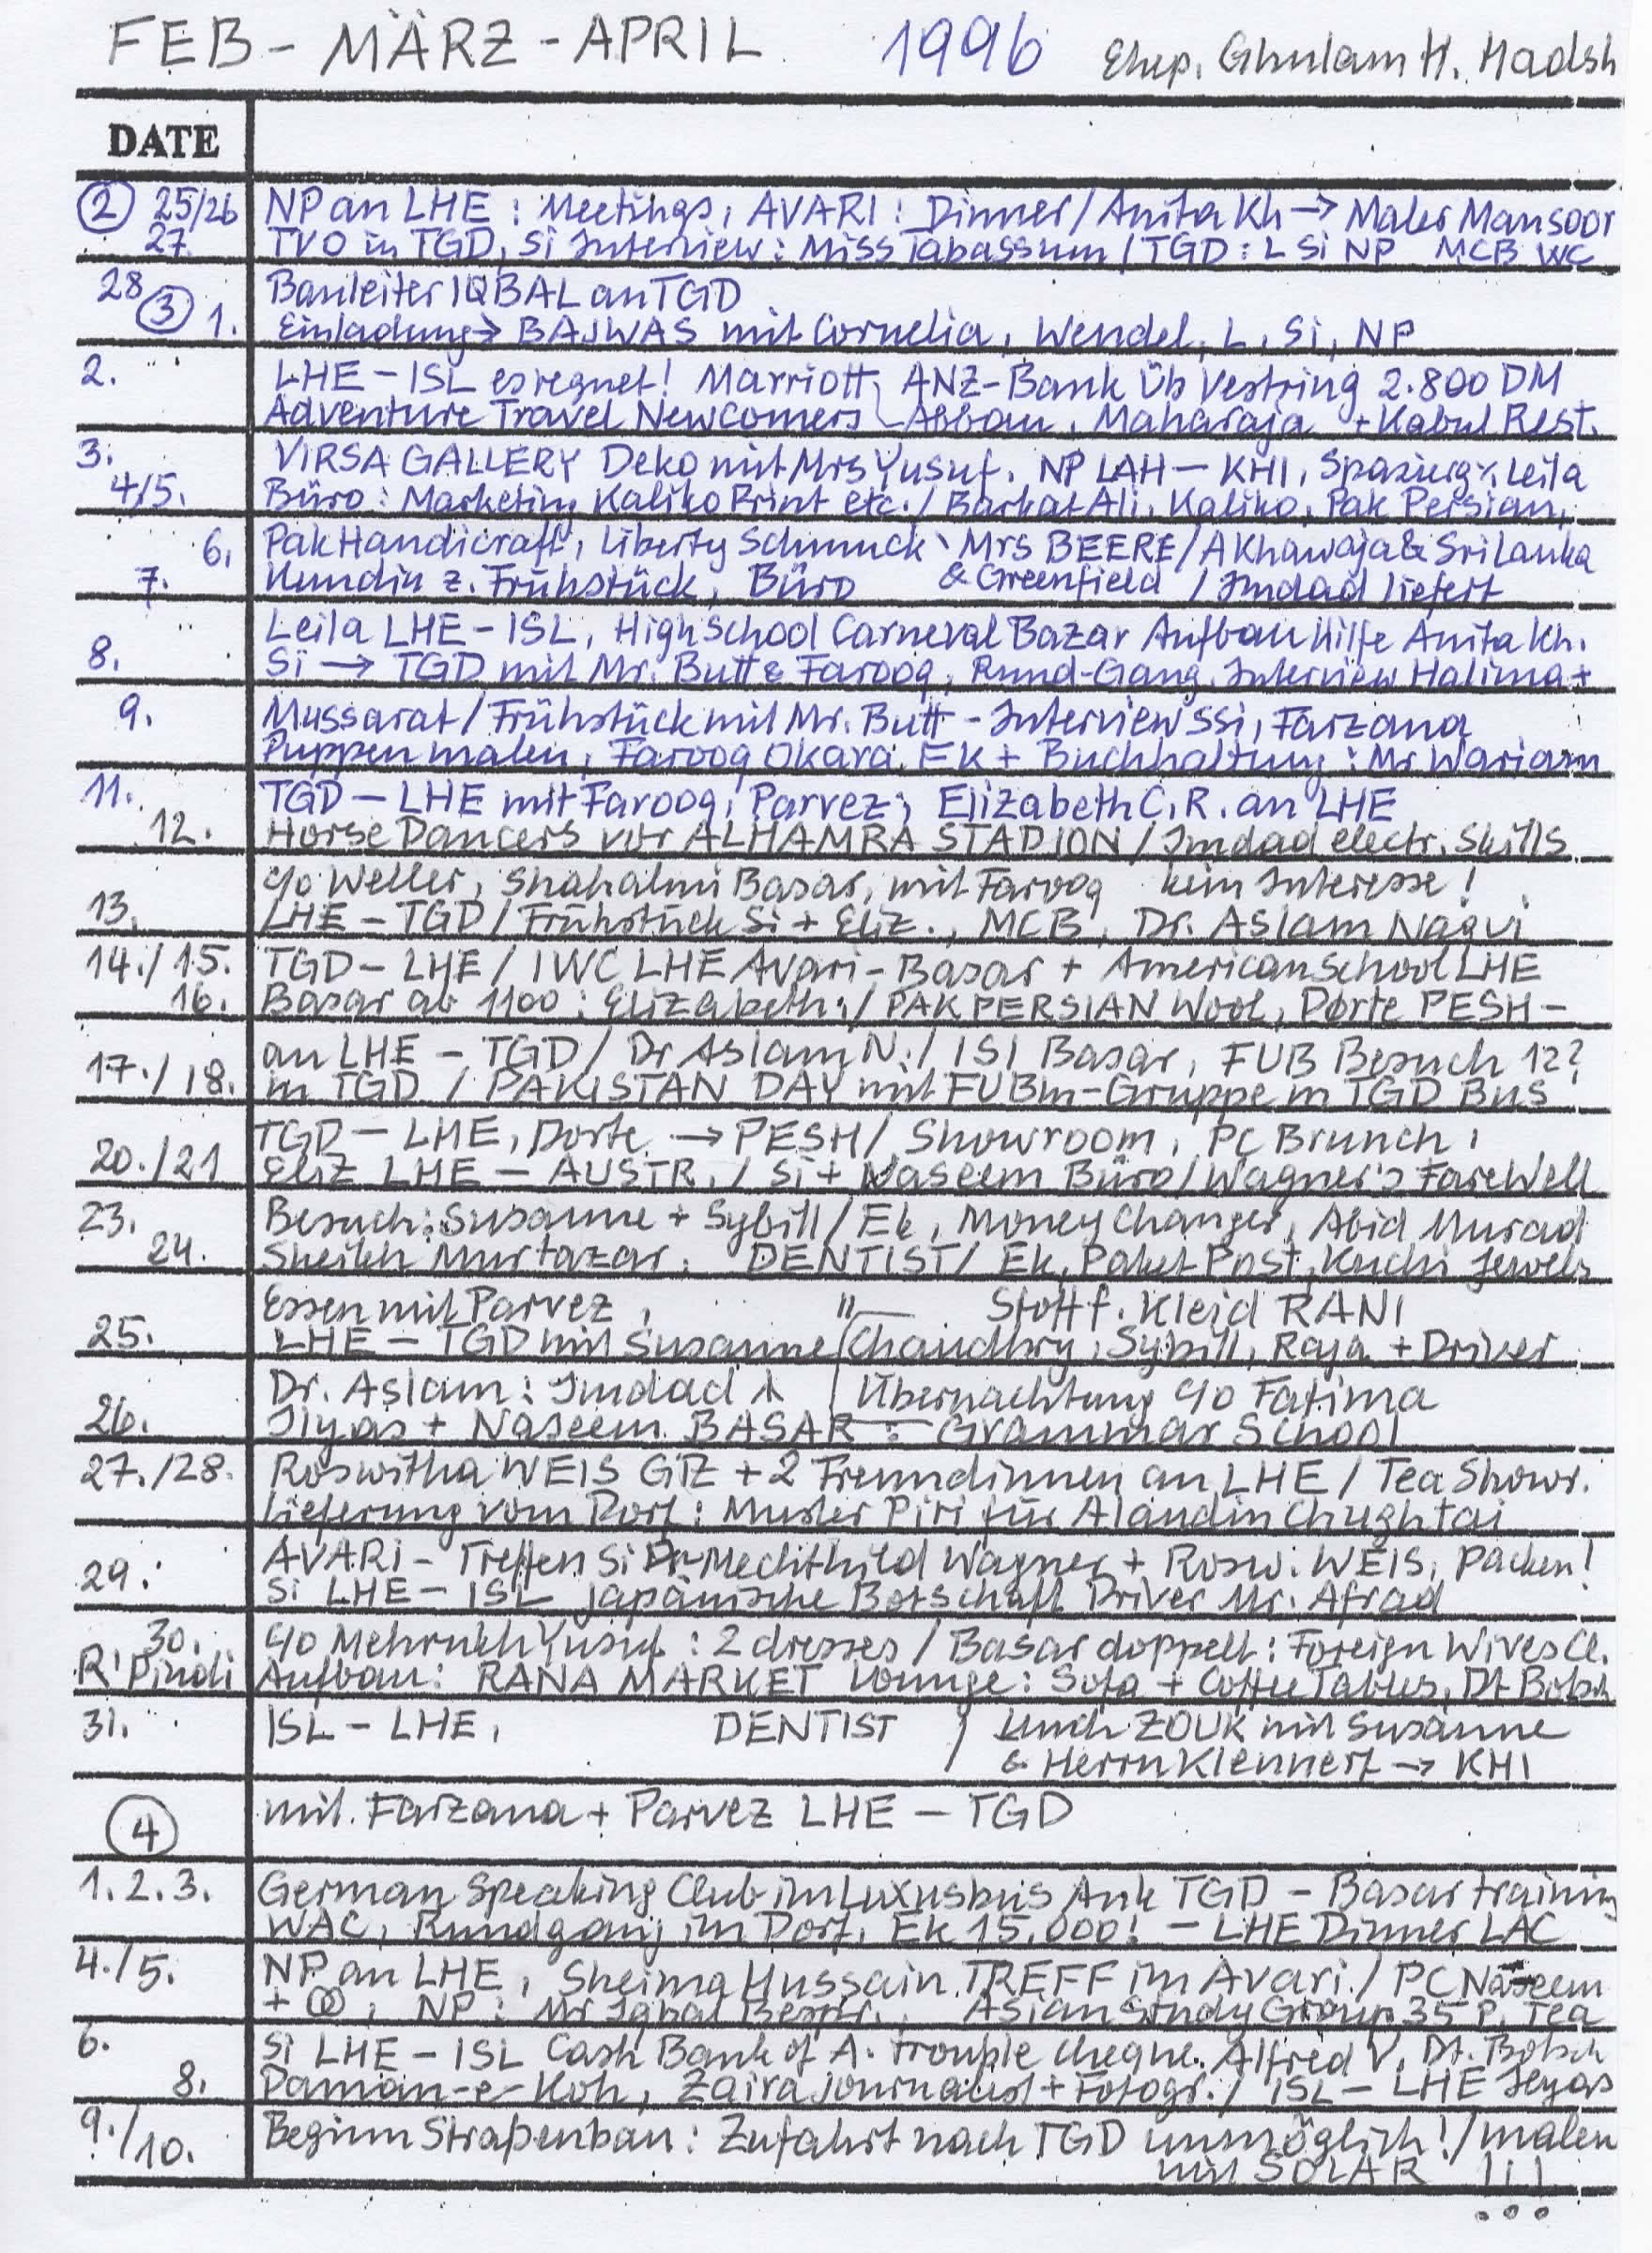 FEB - MÄRZ - APRIL 1996 Ehep. Ghulam H. Hadsh
DATE
② 25/26 NP an LHE : Meetings, AVARI : Dinner / Anita Kh → Maler Mansoor
27. TVO in TGD, Si Interview : Miss Tabassum / TGD : L Si NP MCB WC
28 Bauleiter IQBAL an TGD
③ 1. Einladung → BAJWAS mit Cornelia, Wendel, L, Si, NP
2. LHE - ISL es regnet! Marriott, ANZ-Bank Üb Vestring 2.800 DM
Adventure Travel Newcomers - Abbau, Maharaja + Kabul Rest.
3. VIRSA GALLERY Deko mit Mrs Yusuf, NP LAH - KHI, Spazierg. Leila
4/5. Büro : Marketing Kaliko Print etc. / Barkat Ali, Kaliko, Pak Persian,
6. Pak Handicraft, Liberty Schmuck Mrs BEERE / A Khawaja & Sri Lanka
7. Kundin z. Frühstück, Büro & Greenfield / Imdad liefert
Leila LHE - ISL, High School Carneval Bazar Aufbau Hilfe Anita Kh.
8. Si → TGD mit Mr. Butt & Farooq, Rund-Gang, Interview Halima +
9. Mussarat / Frühstück mit Mr. Butt - Interviews Si, Farzana
Puppen malen, Farooq Okara, EK + Buchhaltung : Mr Wariam
11. TGD - LHE mit Farooq, Parvez, Elizabeth C.R. an LHE
12. Horse Dancers vor ALHAMRA STADION / Imdad electr. Skills
c/o Weller, Shahalmi Basar, mit Farooq kein Interesse!
13. LHE - TGD / Frühstück Si + Eliz., MCB, Dr. Aslam Naqvi
14./15. TGD - LHE / IWC LHE Avari - Basar + American School LHE
16. Basar ab 1100 : Elizabeth / PAK PERSIAN Wool, Dorte PESH -
an LHE - TGD / Dr Aslam N. / ISI Basar, FUB Besuch 12?
17./18. in TGD / PAKISTAN DAY mit FUBm-Gruppe in TGD Bus
TGD - LHE, Dorte → PESH / Showroom, PC Brunch,
20./21 Eliz LHE - AUSTR. / Si + Naseem Büro / Wagner's FareWell
23. Besuch : Susanne + Sybill / Ek, Money Changer, Abid Murad
24. Sheikh Murtazar. DENTIST / Ek, Paket Post, Kuchi Jewels
Essen mit Parvez, "— Stoff f. Kleid RANI
25. LHE - TGD mit Susanne / Chaudhry, Sybill, Raja + Driver
Dr. Aslam : Imdad / Übernachtung c/o Fatima
26. Ilyas + Naseem BASAR : Grammar School
27./28. Roswitha WEIS GTZ + 2 Freundinnen an LHE / Tea Showr.
Lieferung vom Dorf : Muster Piri für Alaudin Chughtai
AVARI - Treffen Si Dr Mechthild Wagner + Rosw. WEIS, Packen!
29. Si LHE - ISL japanische Botschaft Driver Mr. Afrad
30. c/o Mehrukh Yusuf : 2 dresses / Basar doppelt : Foreign Wives Cl.
R'Pindi Aufbau : RANA MARKET Lounge : Sofa + Coffee Tables, Dt Botsch
31. ISL - LHE, DENTIST / Lunch ZOUK mit Susanne
& Herrn Klennert → KHI
④ mit Farzana + Parvez LHE - TGD
1.2.3. German Speaking Club im Luxusbus Ank TGD - Basar training
WAC, Rundgang im Dorf, Ek 15.000! - LHE Dinner LAC
4./5. NP an LHE, Sheima Hussain TREFF im Avari / PC Naseem
+ , NP : Mr Iqbal Bespr., Asian Study Group 35 P. Tea
6. Si LHE - ISL Cash Bank of A. trouble cheque. Alfred V, Dt. Botsch
8. Daman-e-Koh, Zaira Journalist + Fotogr. / ISL - LHE Ilyas
9./10. Beginn Straßenbau : Zufahrt nach TGD unmöglich! / malen
mit SOLAR !!!